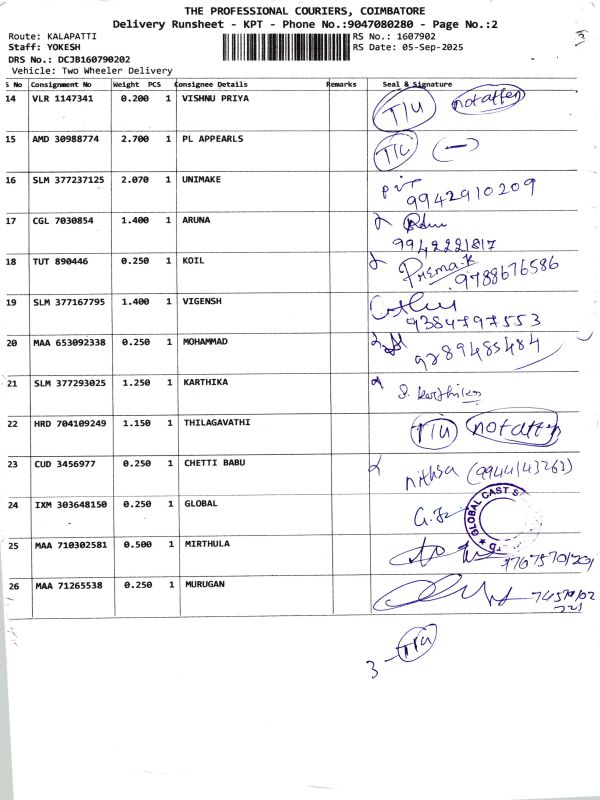 THE PROFESSIONAL COURIERS, COIMBATORE
Delivery Runsheet - KPT - Phone No.:9047080280 - Page No.:2
Route: KALAPATTI RS No.: 1607902
Staff: YOKESH RS Date: 05-Sep-2025
DRS No.: DCJB160790202
Vehicle: Two Wheeler Delivery
S No Consignment No Weight PCS Consignee Details Remarks Seal & Signature
14 VLR 1147341 0.200 1 VISHNU PRIYA T/U not atten
15 AMD 30988774 2.700 1 PL APPEARLS
16 SLM 377237125 2.070 1 UNIMAKE
9942910209
17 CGL 7030854 1.400 1 ARUNA
9942221817
18 TUT 890446 0.250 1 KOIL Prema.k
9788676586
19 SLM 377167795 1.400 1 VIGENSH
9384797553
20 MAA 653092338 0.250 1 MOHAMMAD
9789485484
21 SLM 377293025 1.250 1 KARTHIKA
S. karthika
22 HRD 704109249 1.150 1 THILAGAVATHI T/U not atten
23 CUD 3456977 0.250 1 CHETTI BABU
(9944143263)
24 IXM 303648150 0.250 1 GLOBAL GLOBAL CAST
25 MAA 710302581 0.500 1 MIRTHULA
26 MAA 71265538 0.250 1 MURUGAN
3 - T/U